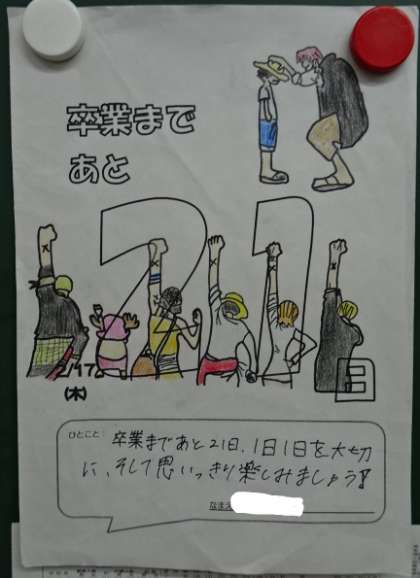 卒業まで
あと
21
2/17
日
(木)
ひとこと: 卒業まであと21日、1日1日を大切
に、そして思いっきり楽しみましょう!!
なまえ